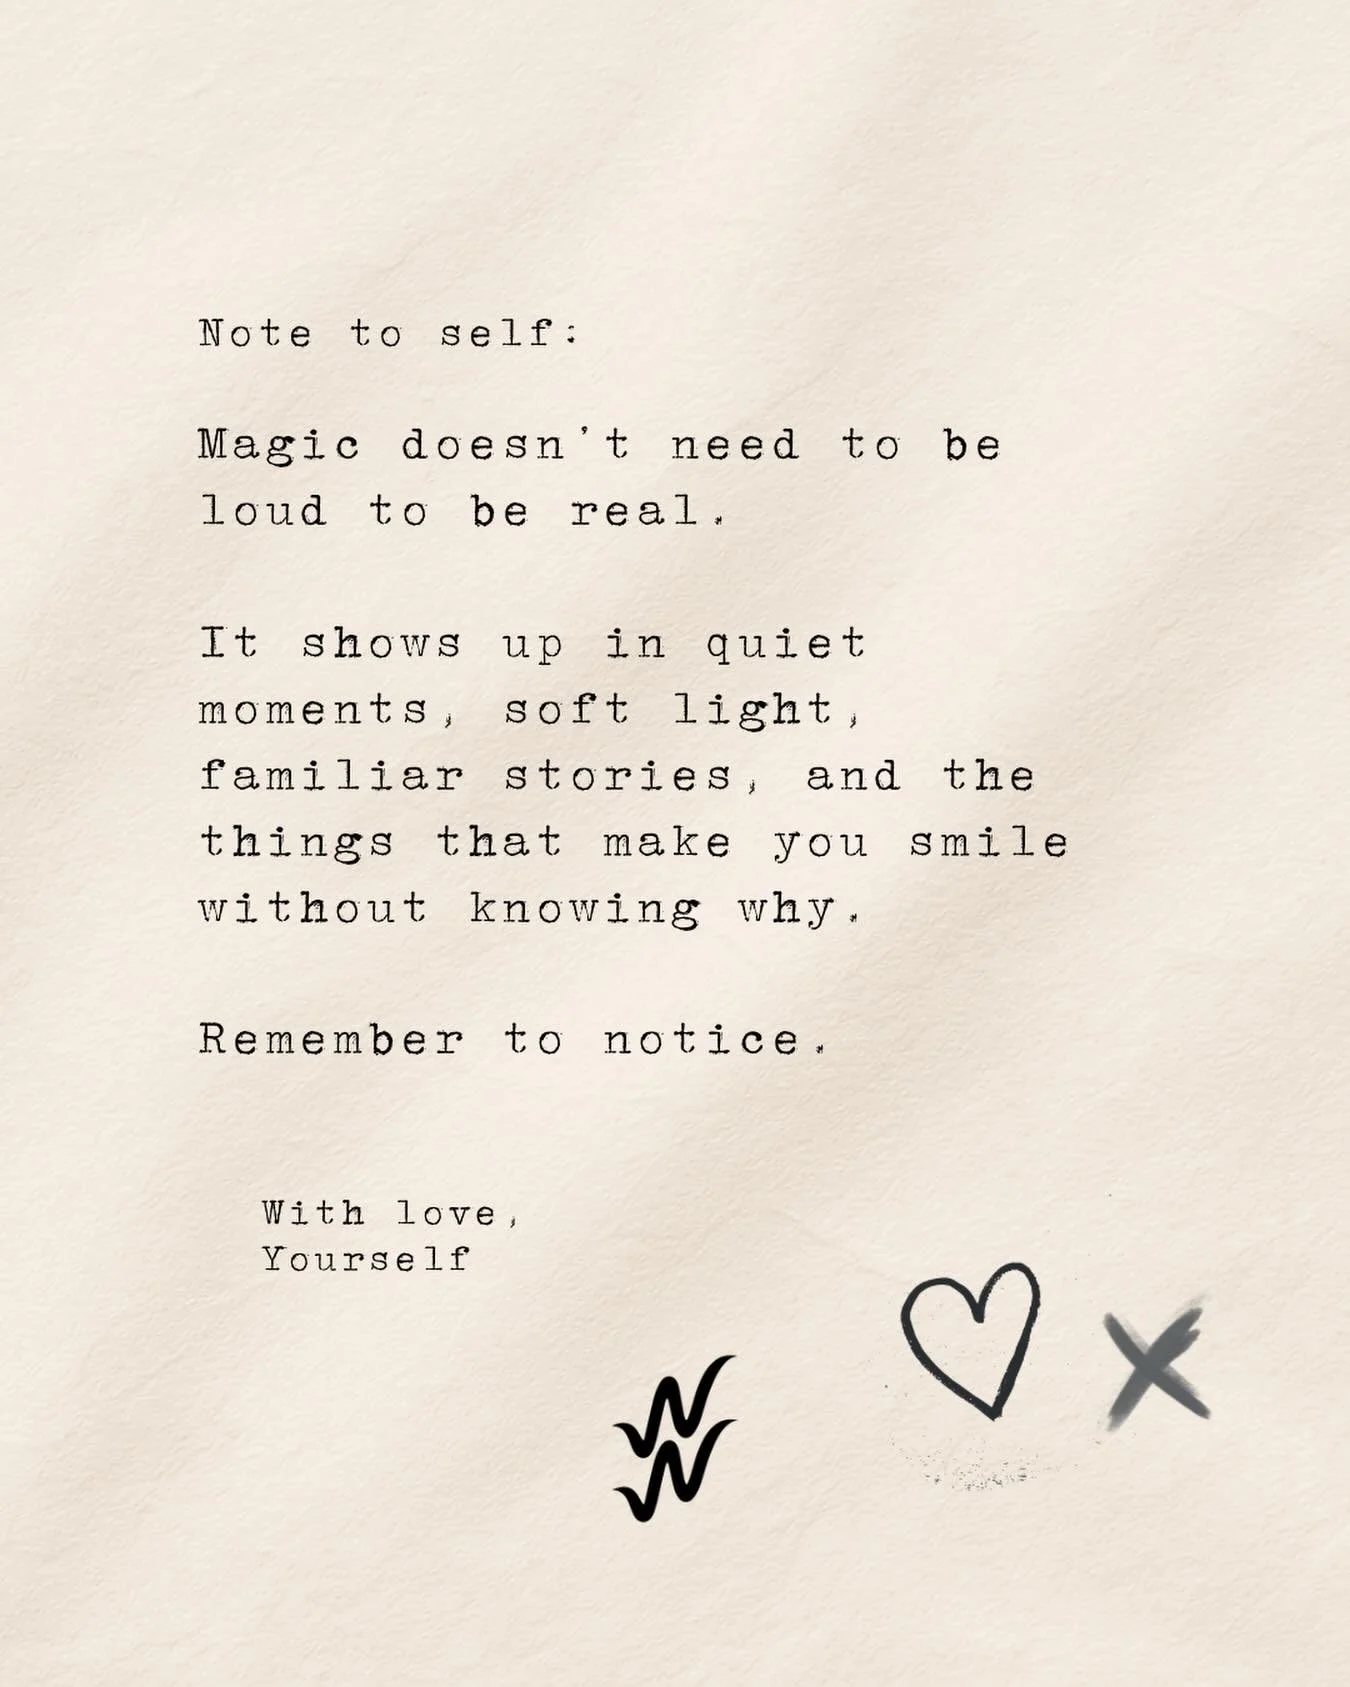 Note to self:
Magic doesn't need to be
loud to be real.
It shows up in quiet
moments, soft light,
familiar stories, and the
things that make you smile
without knowing why.
Remember to notice.
With love,
Yourself